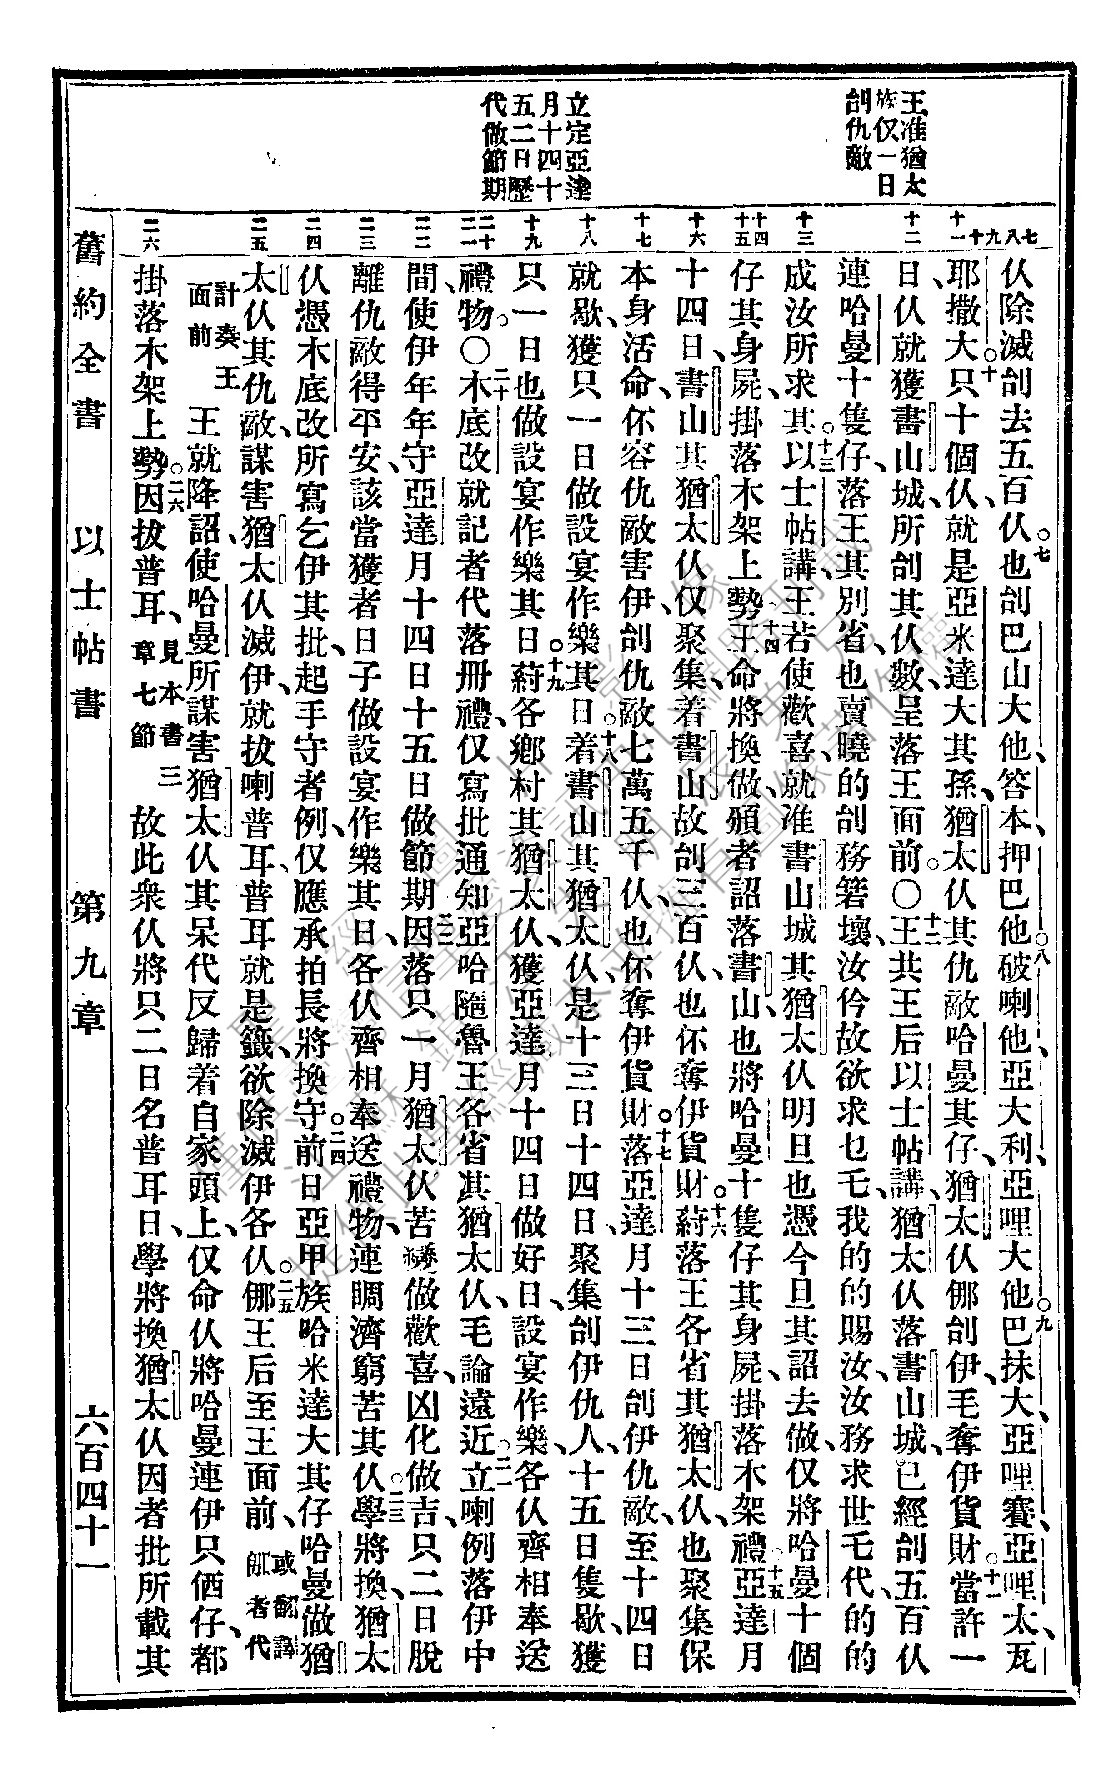 王准猶太
族仅一日
刣仇敵
立定亞達
月十四十
五二日歷
代做節期
七 八 九 十 十一 十二 十三 十四 十五 十六 十七 十八 十九 二十 二一 二二 二三 二四 二五 二六
仈除滅刣去五百仈也。七刣巴山大他、答本、押巴他、八破喇他、亞大利、亞哩大他、九巴抹大、亞哩賽、亞哩太、瓦
耶撒大、只十個仈、就是亞米達大其孫、猶太仈其仇敵哈曼其仔、猶太仈㑚刣伊、毛奪伊貨財。十一當許一
日、仈就獲書山城、所刣其仈數、呈落王面前。○十二王共王后以士帖講、猶太仈落書山城、已經刣五百仈
連哈曼十隻仔、落王其別省、也賣曉的刣務箬壞、汝仱故欲求乜乇、我的的賜汝、汝務求世乇、代的的
成汝所求其。十三以士帖講、王若使歡喜、就准書山城其猶太仈明旦也憑今旦其詔去做、仅將哈曼十個
仔其身屍、掛落木架上勢。十四王命將換做、頒者詔落書山、也將哈曼十隻仔其身屍、掛落木架。十五禮亞達月
十四日、書山其猶太仈仅聚集着書山、故刣三百仈、也伓奪伊貨財。十六䔟落王各省其猶太仈、也聚集保
本身活命、伓容仇敵害伊、刣仇敵七萬五千仈、也伓奪伊貨財。十七落亞達月十三日刣伊仇敵、至十四日
就歇、獲只一日做設宴作樂其日。十八着書山其猶太仈、是十三日十四日、聚集刣伊仇人、十五日隻歇、獲
只一日也做設宴作樂其日。十九䔟各鄉村其猶太仈、獲亞達月十四日做好日、設宴作樂、各仈齊相奉送
禮物。○二十木底改就記者代落冊禮、仅寫批通知亞哈隨魯王各省其猶太仈、毛論遠近、二一立喇例落伊中
間、使伊年年守亞達月十四日十五日做節期、二二因落只一月猶太仈苦變做歡喜、凶化做吉、只二日脫
離仇敵得平安、該當獲者日子做設宴作樂其日、各仈齊相奉送禮物、連賙濟窮苦其仈。二三學將換、猶太
仈憑木底改所寫乞伊其批、起手守者例、仅應承拍長將換守。二四前日亞甲族哈米達大其仔哈曼、做猶
太仈其仇敵、謀害猶太仈、滅伊、就拔喇普耳、普耳就是籤、欲除滅伊各仈。二五㑚王后至王面前、或翻譯㑚者代
計奏王面前 王就降詔、使哈曼所謀害猶太仈其呆代、反歸着自家頭上、仅命仈將哈曼連伊只価仔、都
掛落木架上勢。二六因拔普耳、見本書三章七節 故此眾仈將只二日名普耳日、學將換猶太仈因者批所載其
舊約全書 以士帖書 第九章 六百四十一